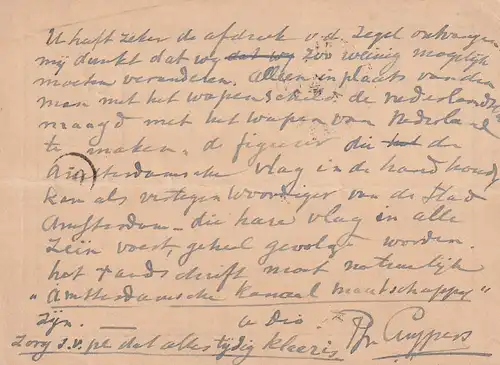 U heeft zeker de afdruk v.d. Zegel ontvangen
mij dunkt dat wy dat wy zoo weinig mogelijk
moeten veranderen. Alleen in plaats van den
man met het wapenschild de nederlandsche
maagd met het wapen van Nederland
te maken. de figuur die het de
Amsterdamsche vlag in de hand houdt
kan als vertegenwoordiger van de Stad
Amsterdam - die hare vlag in alle
voert, geheel gevolgd worden.
het randschrift moet natuurlijk
"Amsterdamsche Kanaal maatschappy"
zyn. u dio
Zorg s.v.pl dat alles tydig klaar is Cuypers